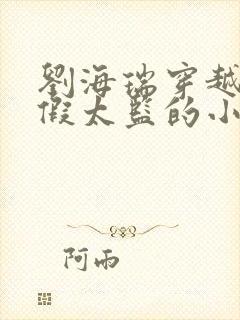 劉海瑞穿越
假太監的小
阿雨